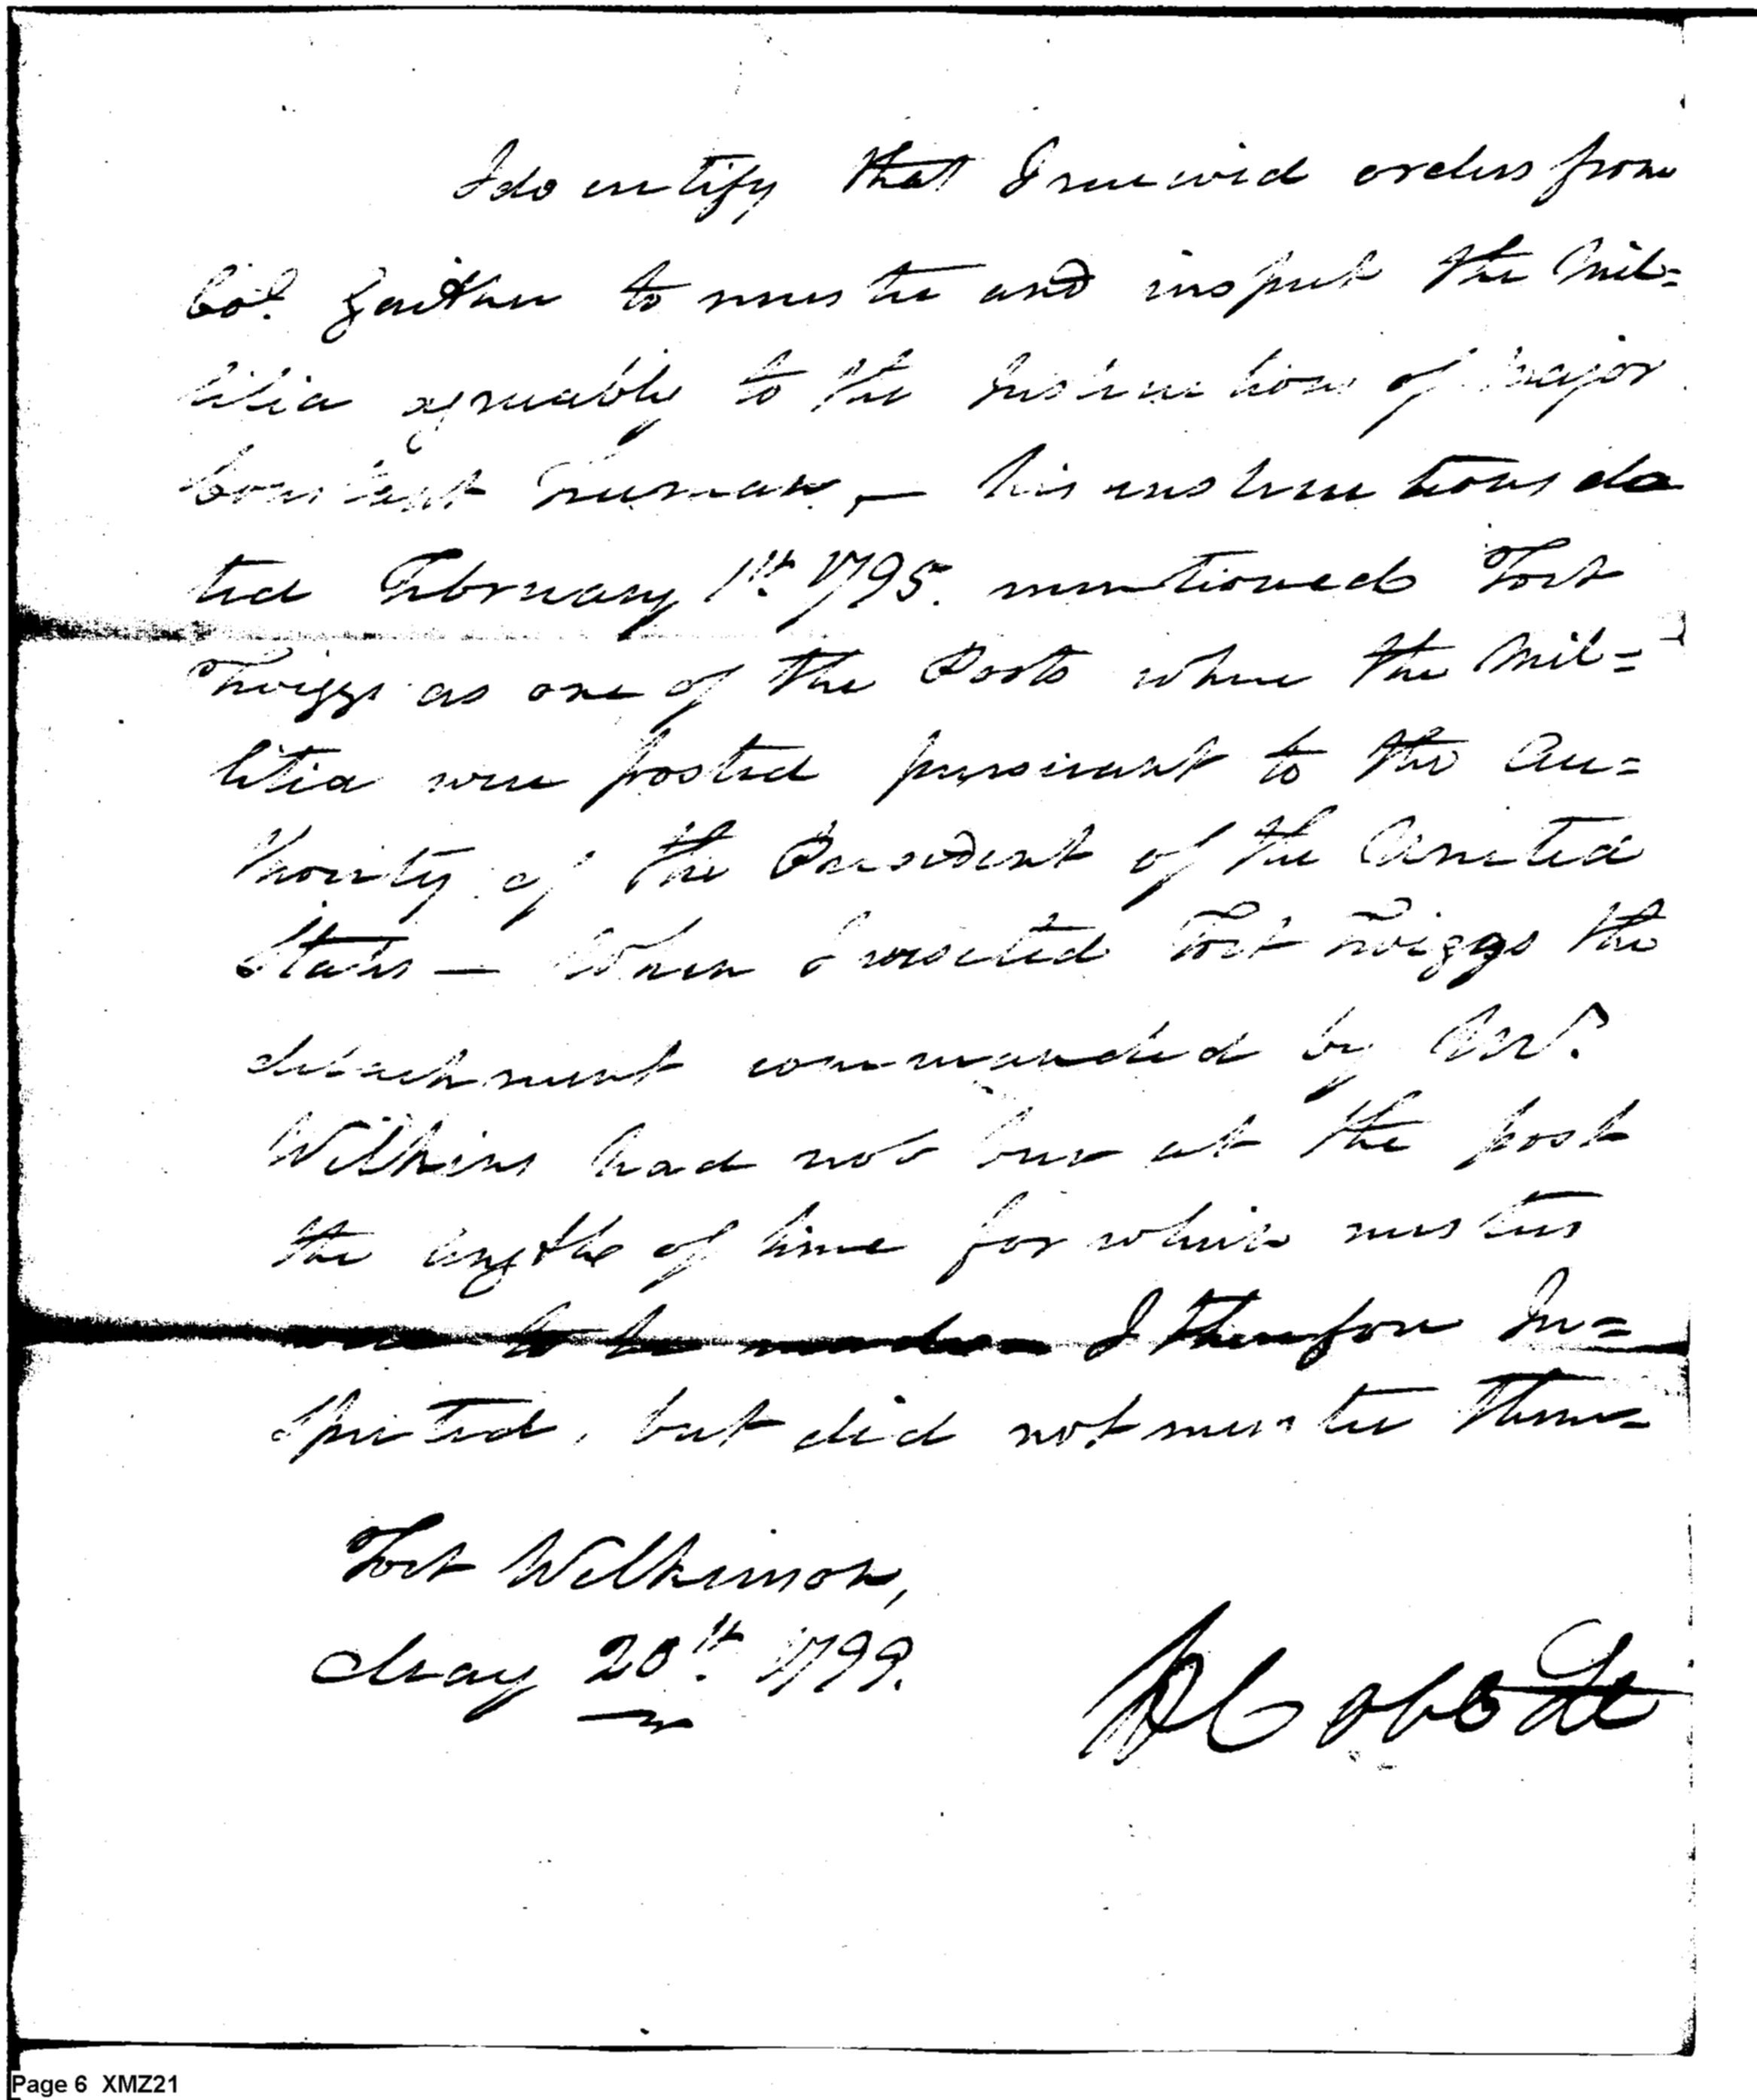 I do certify that I received orders from
Col. Gaither to muster and inspect the Mil=
litia agreeably to the Instructions of Major
Constant Freeman, — his instructions da
ted February 1st 1795. mentioned Fort
Twiggs as one of the Posts where the Mil=
litia were posted pursuant to the Au=
thority of the President of the United
States — When I visited Fort Twiggs the
detachment commanded by Mr.
Wilkins had not been at the post
the length of time for which musters
were to be made I therefore In=
spected, but did not muster them=
Fort Wilkinson,
May 20th 1799.
Page 6 XMZ21